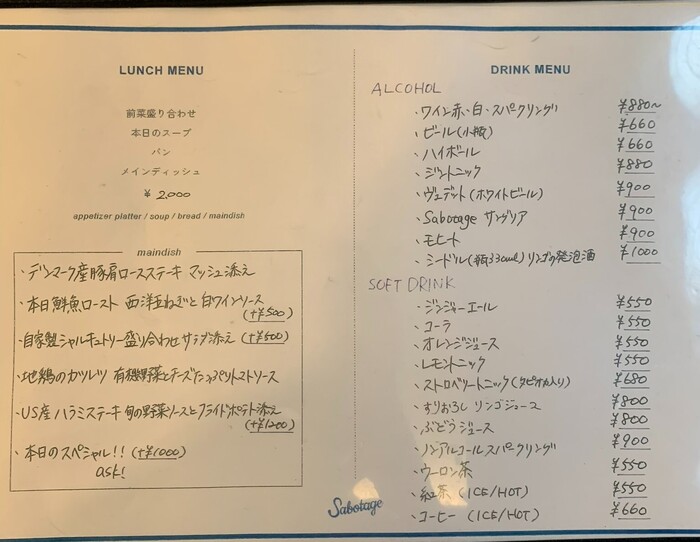 LUNCH MENU
前菜盛り合わせ
本日のスープ
パン
メインディッシュ
¥ 2,000
appetizer platter / soup / bread / maindish
maindish
・デンマーク産豚肩ロースステーキ マッシュ添え
・本日鮮魚ロースト 西洋玉ねぎと白ワインソース
(+¥500)
・自家製シャルキュトリー盛り合わせ サラダ添え (+¥500)
・地鶏のカツレツ 有機野菜とチーズたっぷりトマトソース
・US産 ハラミステーキ 旬の野菜ソースとフライドポテト添え
(+¥1200)
・本日のスペシャル!! (+¥1000)
ask!
DRINK MENU
ALCOHOL
・ワイン赤・白・スパークリング ¥880~
・ビール(小瓶) ¥660
・ハイボール ¥660
・ジントニック ¥880
・ヴェデット(ホワイトビール) ¥900
・Sabotage サングリア ¥900
・モヒート ¥900
・シードル(瓶330ml) リンゴの発泡酒 ¥1000
SOFT DRINK
・ジンジャーエール ¥550
・コーラ ¥550
・オレンジジュース ¥550
・レモントニック ¥550
・ストロベリートニック(タピオカ入り) ¥680
・すりおろし リンゴジュース ¥800
・ぶどうジュース ¥800
・ノンアルコールスパークリング ¥900
・ウーロン茶 ¥550
・紅茶 (ICE/HOT) ¥550
・コーヒー (ICE/HOT) ¥660
Sabotage